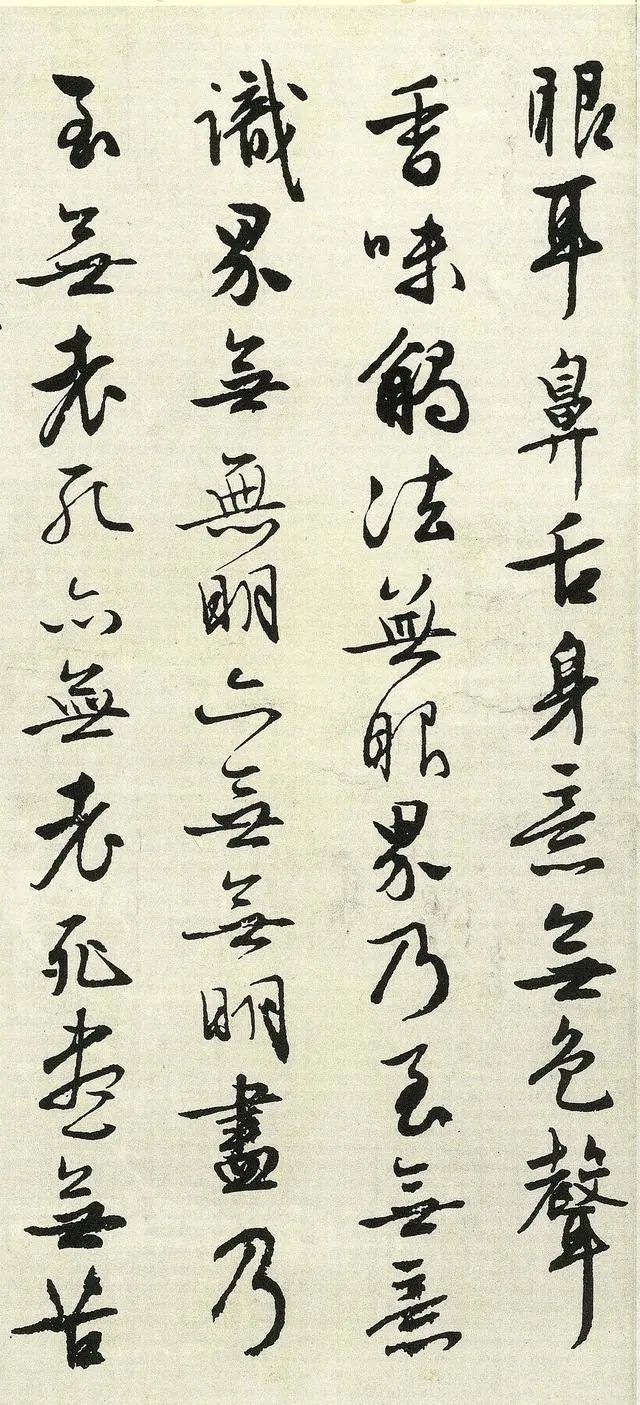 眼耳鼻舌身意無色聲
香味觸法無眼界乃至無意
識界無無明亦無無明盡乃
至無老死亦無老死盡無苦